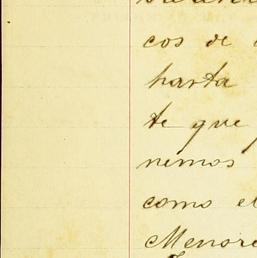 cos de
harta
te que
nemos
como el
Menore